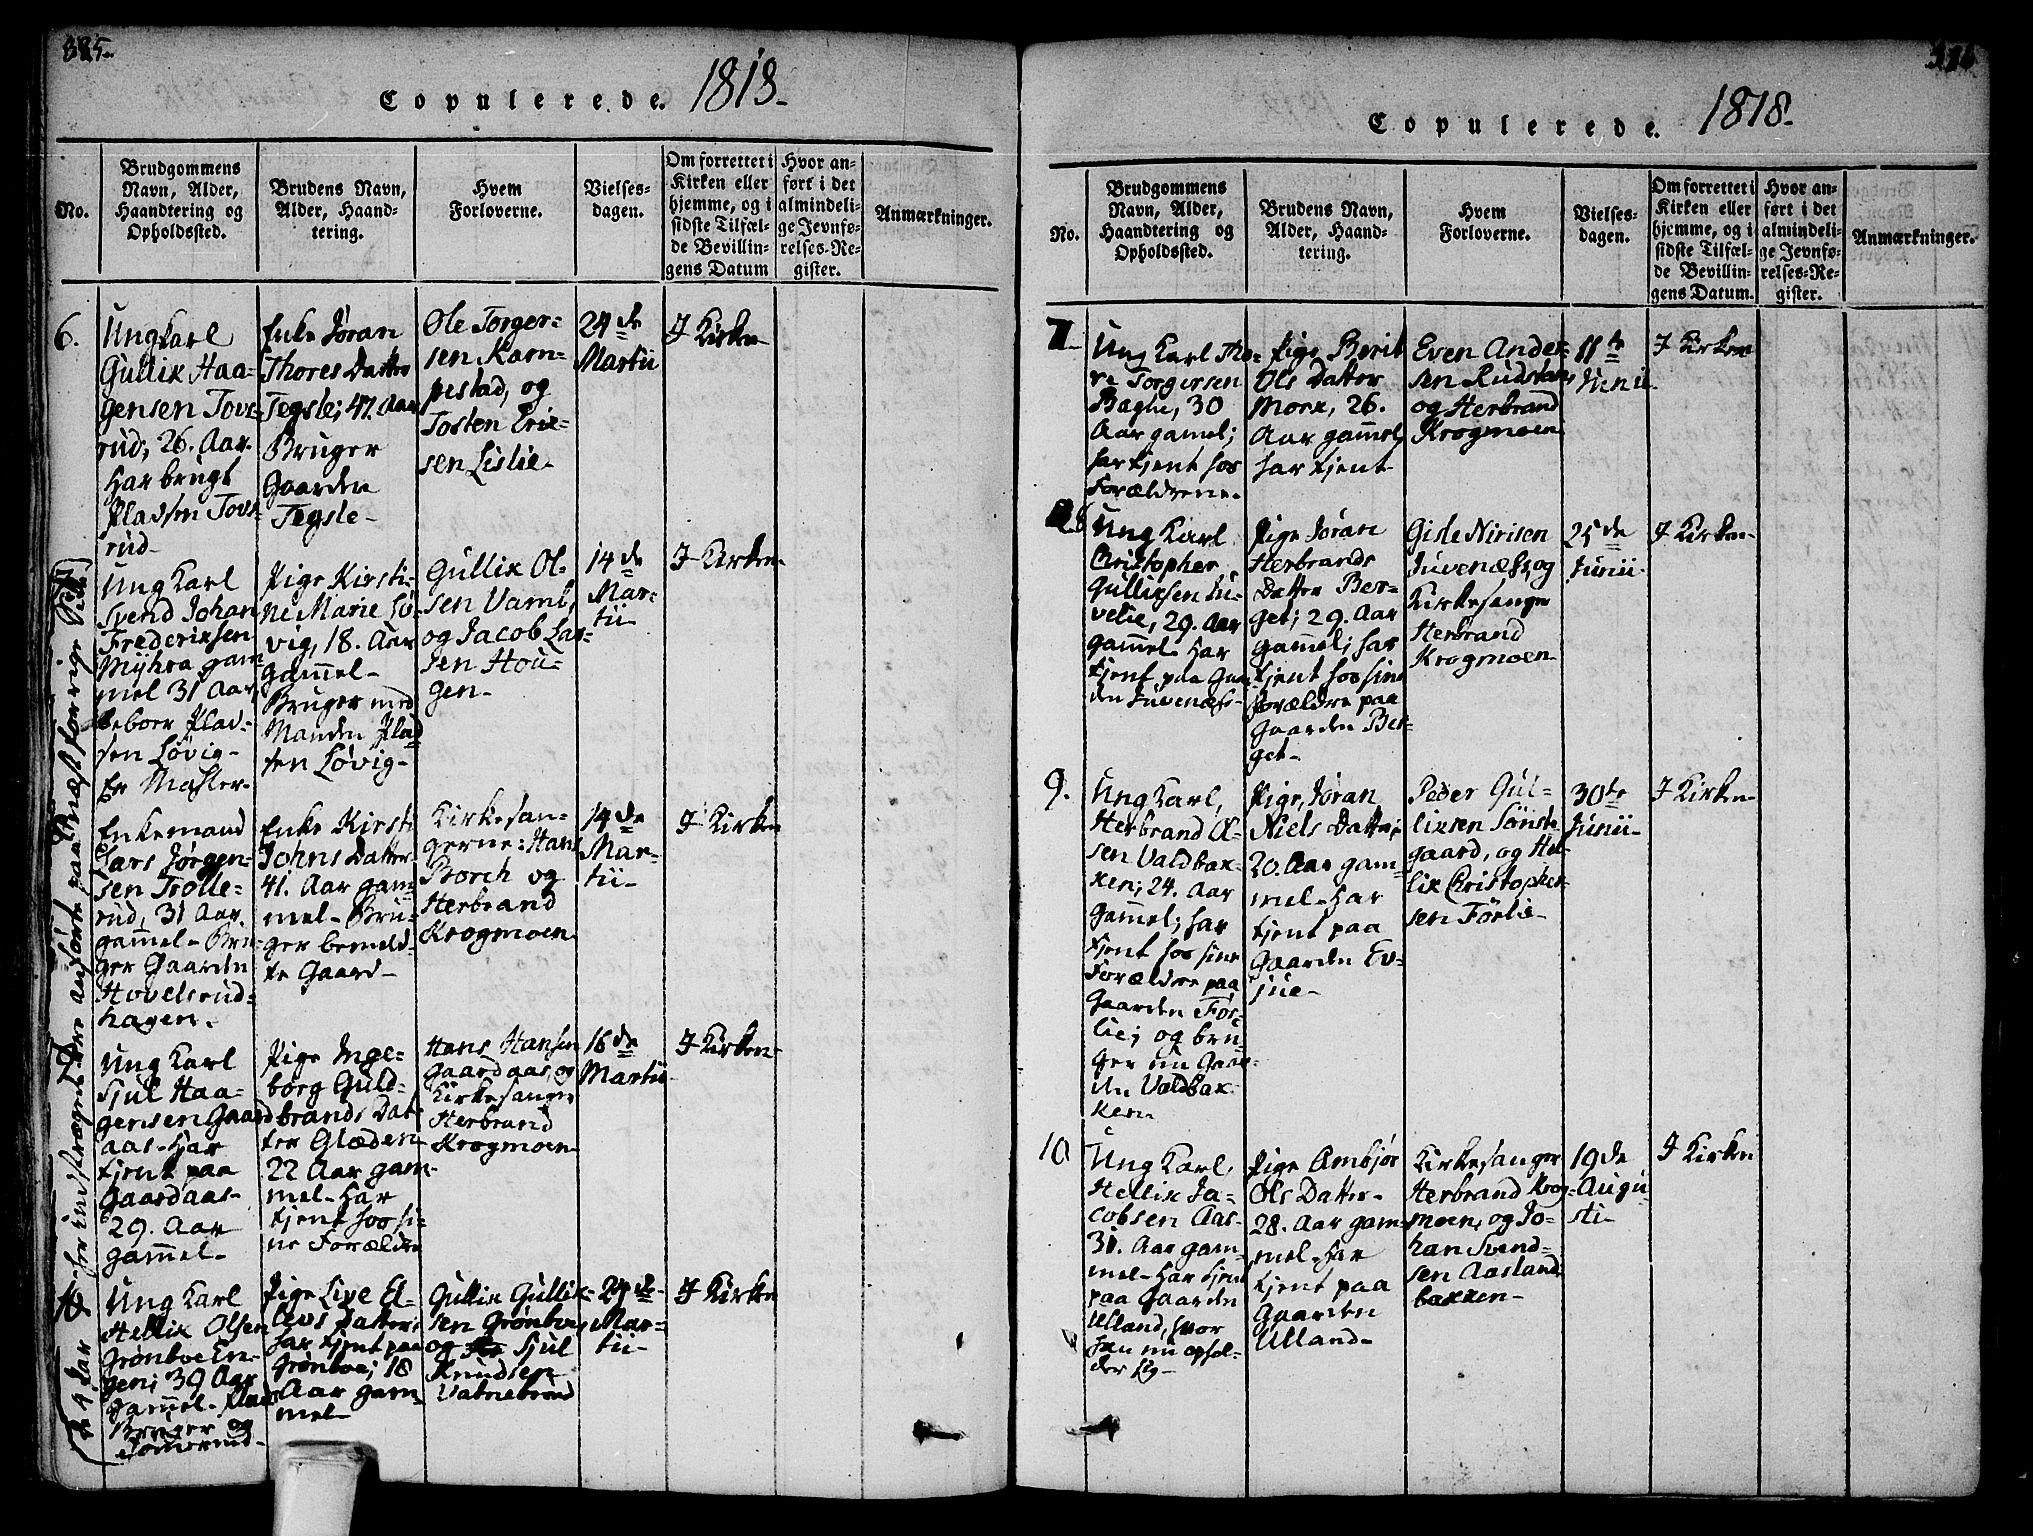 385.
Copulerede. 1818.
No.
Brudgommens
Navn, Alder,
Haandtering og
Opholdssted.
Brudens Navn,
Alder, Haand-
tering.
Hvem
Forloverne.
Vielses-
dagen.
Om forrettet i
Kirken eller
hjemme, og i
sidste Tilfæl-
de Bevillin-
gens Datum
Hvor an-
ført i det
almindeli-
ge Jevnfø-
relses-Re-
gister.
Anmærkninger.
6.
Ungkarl
Gullik Haa-
gensen Tovs-
rud; 26. Aar.
Har brugt
Pladsen Tovs-
rud-
Enke Jøran
Thores Datter
Tegsle; 47. Aar
Bruger
Gaarden
Tegsle-
Ole Torger-
sen Kam-
pestad, og
Tosten Erik-
sen Lislie-
24de
Martii
I Kirken
Ung Karl
Svend Johan
Frederiksen
Mÿhra gam-
mel 31 Aar,
beboer Plad-
sen Løvig-
Er Mahler-
Pige Kirsti-
ne Marie Lø-
vig, 18. Aar
gammel-
Bruger med
Manden Plad
sen Løvig-
Gullik Ol-
sen Vami,
og Jacob Lar-
sen Hou-
gen-
14de
Mar-
tii-
I Kirken-
Enkemand
Lars Jørgen-
sen Trolle-
rud, 31 Aar
gammel- Bru-
ger Gaarden
Hovelsrud-
hagen-
Enke Kirsti
Johns Datter
41. Aar gam
mel- Bru-
ger bemeld-
te Gaard-
Kirkesan-
gerne: Hans
Borch og
Herbrand
Krogmoen
14de
Mar-
tii-
I Kirken
Ung Karl
Sjul Haa-
gensen Gaard
aas- Har
tjent paa
Gaardaas-
29. Aar
gammel-
Pige Inge-
borg Guld-
brands Dat-
ter Glæden
22 Aar gam-
mel- Har
tjent hos si-
ne Forældre
Hans Hansen
Gaardaas, og
Kirkesanger
Herbrand
Krogmoen-
16de
Martii-
I Kirken-
Ung Karl
Hellik Olsen
Grøntve En-
gen; 39 Aar
gammel- Plads
Bruger og
Tømerma-
Pige Live El-
levs Datter;
har tjent paa
Grøntve; 18
Aar gam-
mel-
Gullik Gullik-
sen Grøntve,
og Sjul
Knudsen
Vatnebrønd
29de
Mar-
tii-
I Kirken
næst forrige Side
Copulerede. 1818.
No.
Brudgommens
Navn, Alder,
Haandtering og
Opholdssted.
Brudens Navn,
Alder, Haand-
tering.
Hvem
Forloverne.
Vielses-
dagen.
Om forrettet i
Kirken eller
hjemme, og i
sidste Tilfæl-
de Bevillin-
gens Datum.
Hvor an-
ført i det
almindeli-
ge Jevnfø-
relses-Re-
gister.
Anmærkninger.
7
Ung Karl Tho-
re Torgersen
Baghe, 30
Aar gamel;
har tjent hos
Forældrene.
Pige Berit
Ols Datter
Mork, 26.
Aar gammel,
har tjent
Even Ander-
sen Rudstan,
og Herbrand
Krogmoen
11te
Junii
I Kirken
8
Ung Karl
Christopher
Gulliksen Ju-
velie, 29. Aar
gammel Har
tjent paa Gaar
den Juvenæs-
Pige Jøran
Herbrands
Datter Ber-
get; 29. Aar
gammel; har
tjent hos sine
Forældre paa
Gaarden Ber-
get-
Gisle Nirisen
Juvenæs, og
Kirkesanger
Herbrand
Krogmoen-
25de
Junii-
I Kirken-
9.
Ung Karl,
Herbrand O-
sen Valdbak-
ken; 24. Aar
gammel; har
tjent hos sine
Forældre paa
Gaarden Før-
lie; og bru-
ger nu Gaar-
den Valdbak-
ken-
Pige, Jøran
Niels Datter
20. Aar gam-
mel- Har
tjent paa
Gaarden Ev-
jue-
Peder Gul-
liksen Sønste
gaard, og Hel-
lik Christopher
sen Førlie-
30te
Junii-
I Kirken-
10
Ung Karl,
Hellik Ja-
cobsen Aas-
31. Aar gam-
mel- Har tjent
paa Gaarden
Ulland, hvor
han nu ophol-
der sig-
Pige Ambjør
Ols Datter-
28. Aar gam-
mel- Har
tjent paa
Gaarden
Ulland-
Kirkesanger
Herbrand Krog-
moen, og Jo-
han Svend-
sen Aasland
bakken-
19de
Augu-
sti-
I Kirken